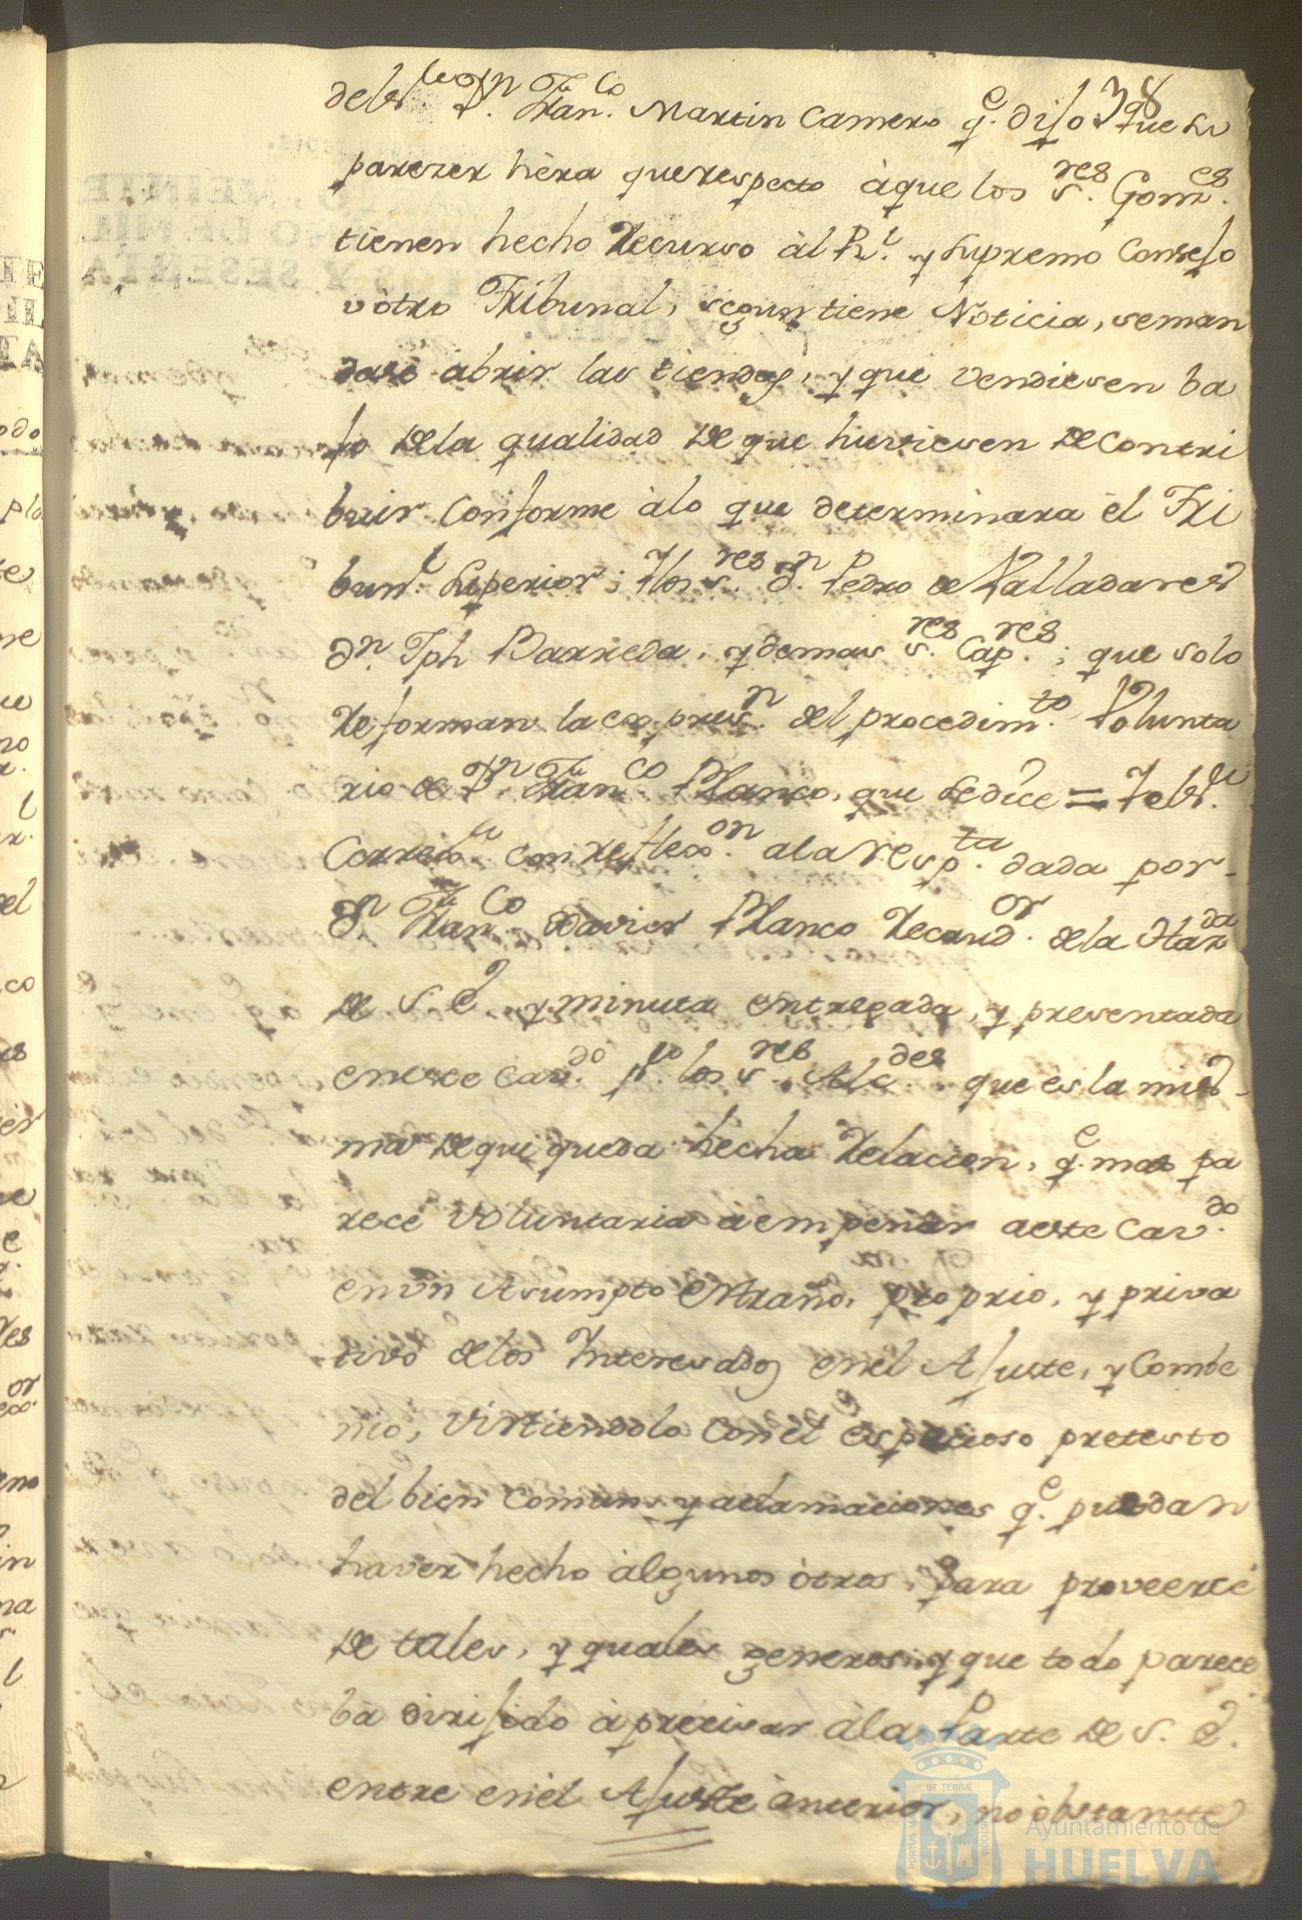 38
del s.^r D.^n Fran.^co Martin Camero q.^e dijo que su
parezer hèra que respecto à que los s.^res Gonz.^es
tienen hecho Recurso àl R.^l y Supremo Consejo
v òtro Tribunal, segun tiene Noticia, se man
dase àbrir las tiendas, y que vendiesen ba
jo de la qualidad de que huviesen de Contri
buir Conforme àlo que determinara èl Tri
bun.^l Superior; Y los s.^res D.^n Pedro de Valladares
D.^n Jph Barreda, y demas s.^res Cap.^res; que solo
Reforman la expres.^n del procedim.^to Volunta
rio de D.^n Fran.^co Blanco, que se dice =
Correx.^r con reflex.^on a la resp.^ta dada por
D.^n Fran.^co Xavier Blanco Recaud.^or de la Haz.^da
de S. E. y minuta entregada, y presentada
en este Cav.^do p.^r los s.^res Alc.^des que es la mis
ma de que queda hecha Relacion, q.^e mas pa
rece voluntaria a empeñar a este Cav.^do
en vn Asumpto estraño, proprio, y priva
tivo de los Interesados en el Ajuste, y Combe
nio, virtiendolo con el espacioso pretesto
del bien Comun y aclamaciones q.^e puedan
haver hecho àlgunos òtros, para proveerse
de tales, y quales generos; y que todo parece
bà dirijido à precisar àla Parte de S. E.
entre en èl Ajuste ànterior, no òbstante
BT TERRÆ
PORTUS MARIS
CUSTODIA
Ayuntamiento de
HUELVA